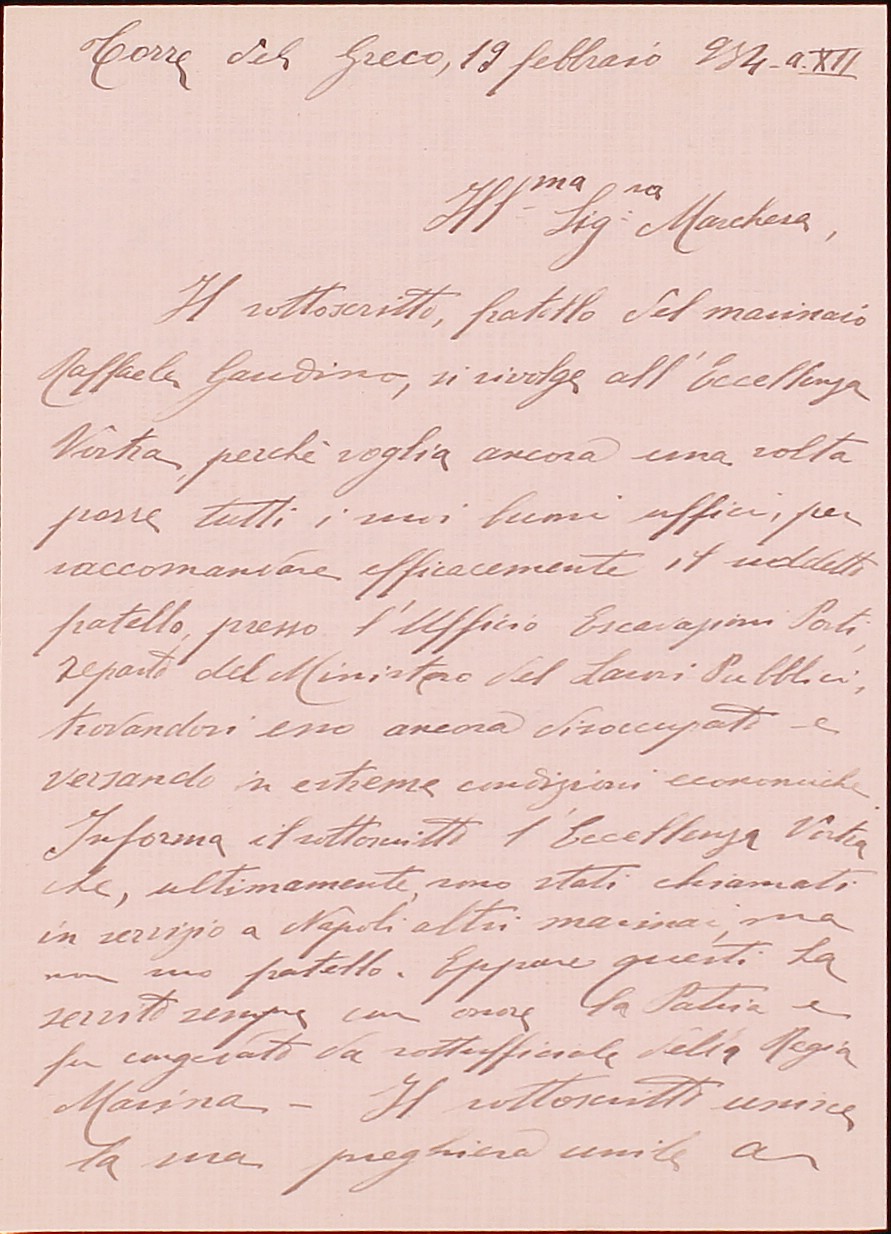 Torre del Greco, 19 febbraio 934 - a. XII
Ill.ma Sig.ra Marchesa,
Il sottoscritto, fratello del marinaio
Raffaele Gaudino, si rivolge all'Eccellenza
Vostra, perchè voglia ancora una volta
porre tutti i suoi buoni uffici, per
raccomandare efficacemente il suddetto
fratello, presso l'Ufficio Escavazioni Porti,
reparto del Ministero dei Lavori Pubblici,
trovandosi esso ancora disoccupato e
versando in estreme condizioni economiche.
Informa il sottoscritto l'Eccellenza Vostra
che, ultimamente, sono stati chiamati
in servizio a Napoli altri marinai, ma
non suo fratello. Eppure questi ha
servito sempre con onore la Patria e
fu congedato da sottufficiale della Regia
Marina - Il sottoscritto unisce
la sua preghiera umile a